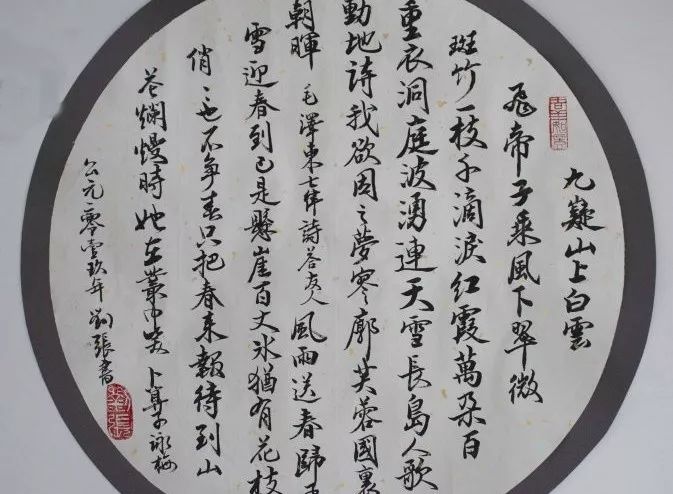 九疑山上白雲
飛帝子乘風下翠微
斑竹一枝千滴淚紅霞萬朵百
重衣洞庭波湧連天雪長島人歌
動地詩我欲因之夢寥廓芙蓉國裏
朝暉 毛澤東七律詩答友人 風雨送春歸
雪迎春到已是懸崖百丈冰猶有花枝
俏々也不爭春只把春來報待到山
花爛熳時她在叢中笑 卜算子詠梅
公元二零壹玖年劉張書